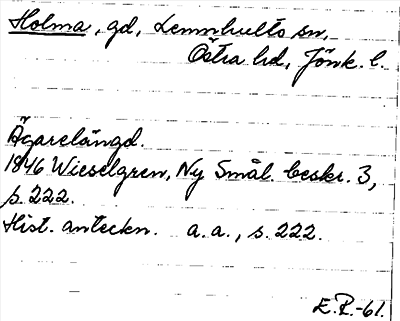 Holma, gd, Lemnhults sn,
Östra hd, Jönk. l.
Ägarelängd.
1846 Wieselgren, Ny Smål. beskr. 3,
s. 222.
Hist. anteckn. a. a., s. 222.
E.R.-61.